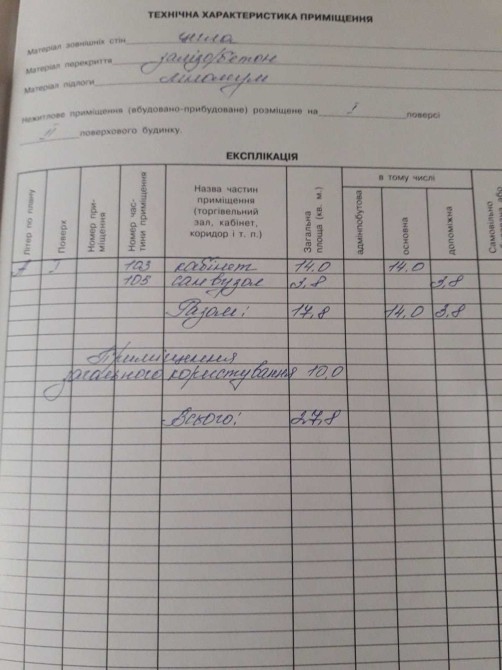 ТЕХНІЧНА ХАРАКТЕРИСТИКА ПРИМІЩЕННЯ
Матеріал зовнішніх стін цегла
Матеріал перекриття залізо/бетон
Матеріал підлоги лінолеум
Нежитлове приміщення (вбудовано-прибудоване) розміщене на I поверсі
II поверхового будинку.
ЕКСПЛІКАЦІЯ
Літер по плану
Поверх
Номер приміщення
Номер частини приміщення
Назва частин приміщення (торгівельний зал, кабінет, коридор і т. п.)
Загальна площа (кв. м.)
в тому числі
адмінпобутова
основна
допоміжна
Самовільно
103 кабінет 14,0 14,0
105 санвузол 3,8 3,8
Разом: 17,8 14,0 3,8
Приміщення
загального користування 10,0
Всього: 27,8